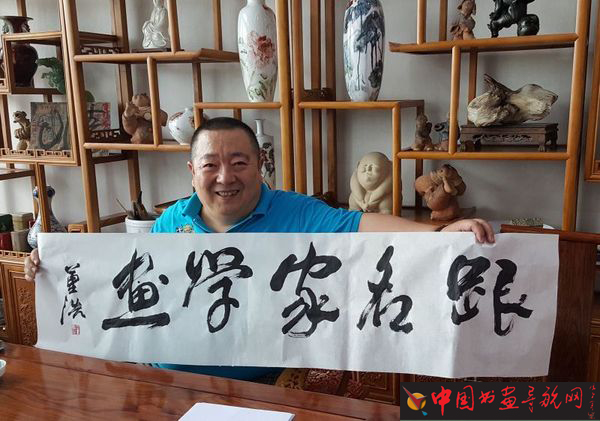 跟名家学画
董浩
中国书画导航网